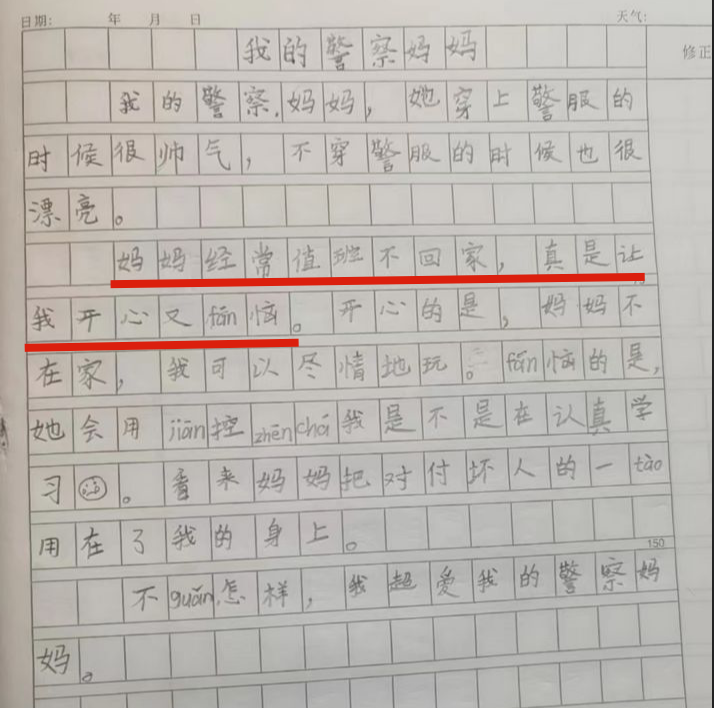 日期: 年 月 日 天气:
修正
我的警察妈妈
我的警察,妈妈,她穿上警服的
时候很帅气,不穿警服的时候也很
漂亮。
妈妈经常值班不回家,真是让
我开心又fán恼。开心的是,妈妈不
在家,我可以尽情地玩。fán恼的是,
她会用jiān控zhēnchá我是不是在认真学
习。看来妈妈把对付坏人的一tào
用在了我的身上。
150
不guǎn怎样,我超爱我的警察妈
妈。